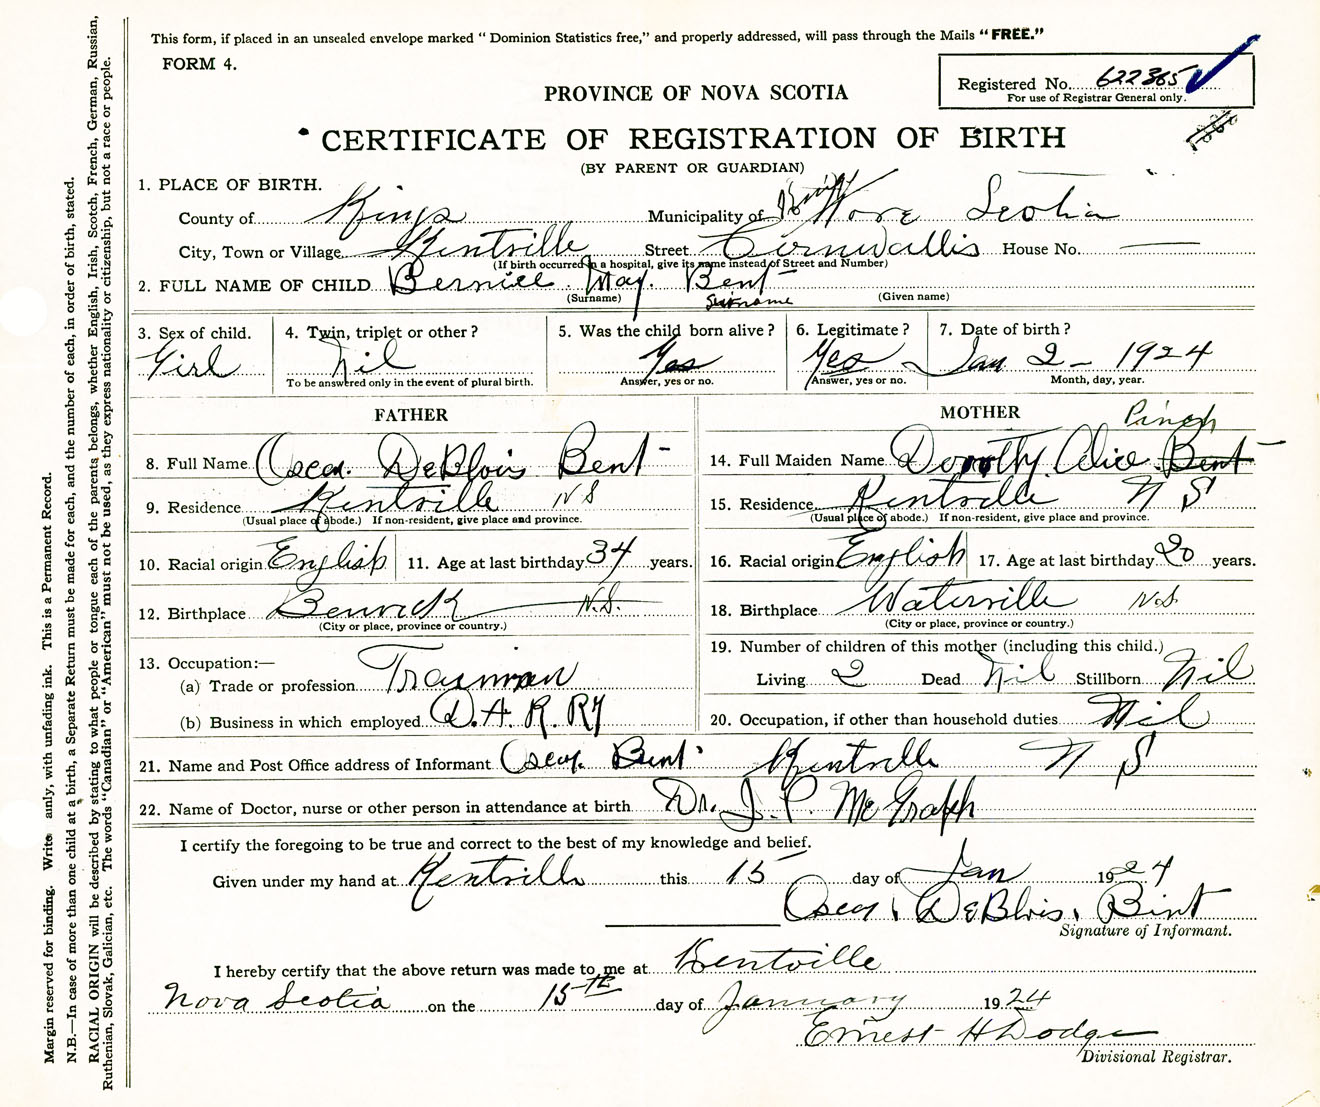 This form, if placed in an unsealed envelope marked "Dominion Statistics free," and properly addressed, will pass through the Mails "FREE."
FORM 4.
Registered No. 622365
For use of Registrar General only.
PROVINCE OF NOVA SCOTIA
CERTIFICATE OF REGISTRATION OF BIRTH
(BY PARENT OR GUARDIAN)
1. PLACE OF BIRTH.
County of Kings Municipality of Nova Scotia
City, Town or Village Kentville Street Cornwallis House No. —
(If birth occurred in a hospital, give its name instead of Street and Number)
2. FULL NAME OF CHILD Bernice May. Bent
(Surname) Surname (Given name)
3. Sex of child. 4. Twin, triplet or other? 5. Was the child born alive? 6. Legitimate? 7. Date of birth?
Girl Nil Yes Yes Jan 2 - 1924
To be answered only in the event of plural birth. Answer, yes or no. Answer, yes or no. Month, day, year.
FATHER MOTHER
Pinch
8. Full Name Oscar. DeBlois Bent 14. Full Maiden Name Dorothy Alice Bent
9. Residence Kentville NS 15. Residence Kentville N S
(Usual place of abode.) If non-resident, give place and province. (Usual place of abode.) If non-resident, give place and province.
10. Racial origin English 11. Age at last birthday 34 years. 16. Racial origin English 17. Age at last birthday 20 years.
12. Birthplace Berwick N.S. 18. Birthplace Waterville N.S
(City or place, province or country.) (City or place, province or country.)
13. Occupation:— 19. Number of children of this mother (including this child.)
(a) Trade or profession Trainman Living 2 Dead Nil Stillborn Nil
(b) Business in which employed D.A.R. RY 20. Occupation, if other than household duties Nil
21. Name and Post Office address of Informant Oscar Bent Kentville N S
22. Name of Doctor, nurse or other person in attendance at birth Dr. J. P. McGrath
I certify the foregoing to be true and correct to the best of my knowledge and belief.
Given under my hand at Kentville this 15 day of Jan 1924
Oscar DeBlois Bent
Signature of Informant.
I hereby certify that the above return was made to me at Kentville
Nova Scotia on the 15th day of January 1924
Ernest H Dodge
Divisional Registrar.
Margin reserved for binding. Write anly, with unfading ink. This is a Permanent Record.
N.B.—In case of more than one child at a birth, a Separate Return must be made for each, and the number of each, in order of birth, stated.
RACIAL ORIGIN will be described by stating to what people or tongue each of the parents belongs, whether English, Irish, Scotch, French, German, Russian,
Ruthenian, Slovak, Galician, etc. The words "Canadian" or "American" must not be used, as they express nationality or citizenship, but not a race or people.